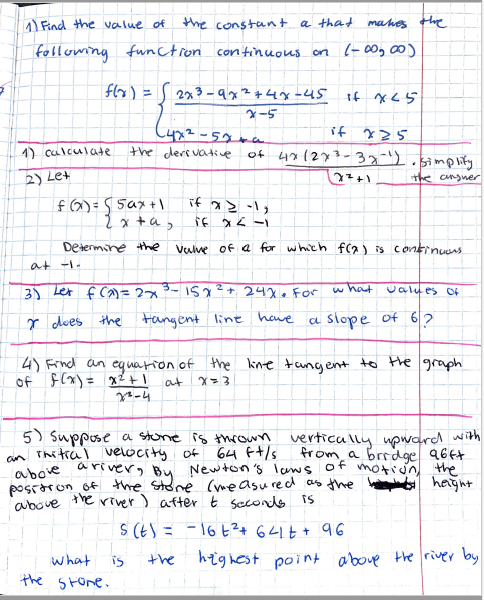 1) Find the value of the constant a that makes the
following function continuous on (-∞, ∞)
f(x) = { 2x³ - 9x² + 4x - 45 / x-5 if x < 5
4x² - 5x + a if x ≥ 5
1) calculate the derivative of 4x(2x³ - 3x - 1) / x² + 1 . simplify
the answer
2) Let
f(x) = { 5ax + 1 if x ≥ -1,
x + a, if x < -1
Determine the value of a for which f(x) is continuous
at -1.
3) Let f(x) = 2x³ - 15x² + 24x. For what values of
x does the tangent line have a slope of 6?
4) Find an equation of the line tangent to the graph
of f(x) = x² + 1 / x² - 4 at x = 3
5) Suppose a stone is thrown vertically upward with
an initial velocity of 64 ft/s from a bridge 96ft
above a river, By Newton's laws of motion, the
position of the stone (measured as the height
above the river) after t seconds is
s(t) = -16t² + 64t + 96
what is the highest point above the river by
the stone.